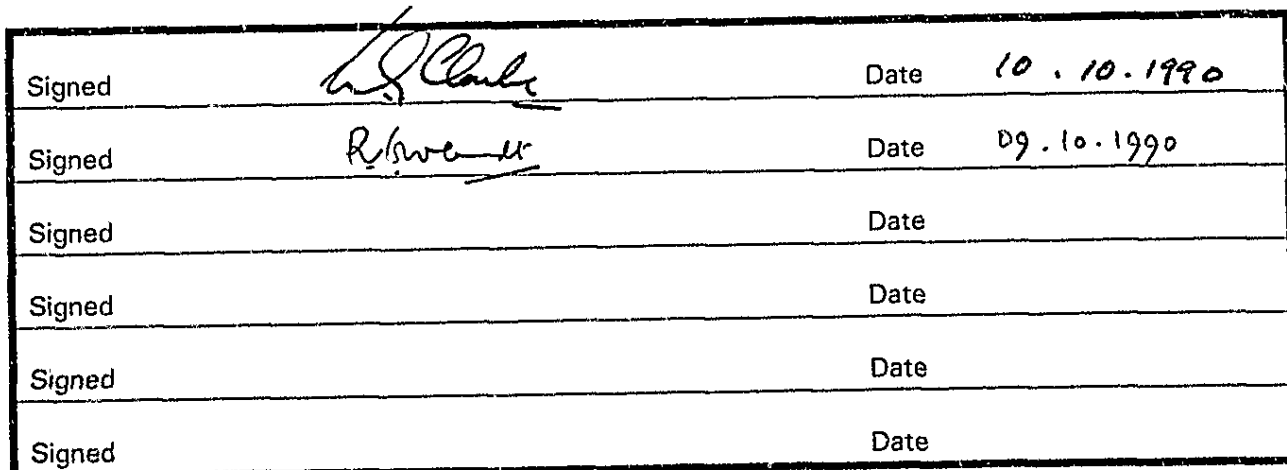 Signed Clarke Date 10.10.1990
Signed Date 09.10.1990
Signed Date
Signed Date
Signed Date
Signed Date